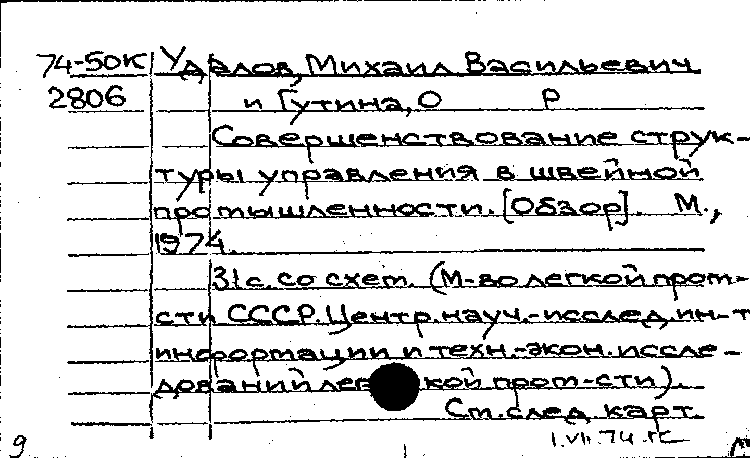 74-50К Удалов, Михаил Васильевич
2806 и Гутина, О Р
Совершенствование струк-
туры управления в швейной
промышленности. [Обзор]. М.,
1974.
31 с. со схем. (М-во легкой пром-
сти СССР. Центр. науч.-исслед. ин-т
информации и техн.-экон. иссле-
дований легкой пром-сти).
См. след. карт.
9 1.VII.74